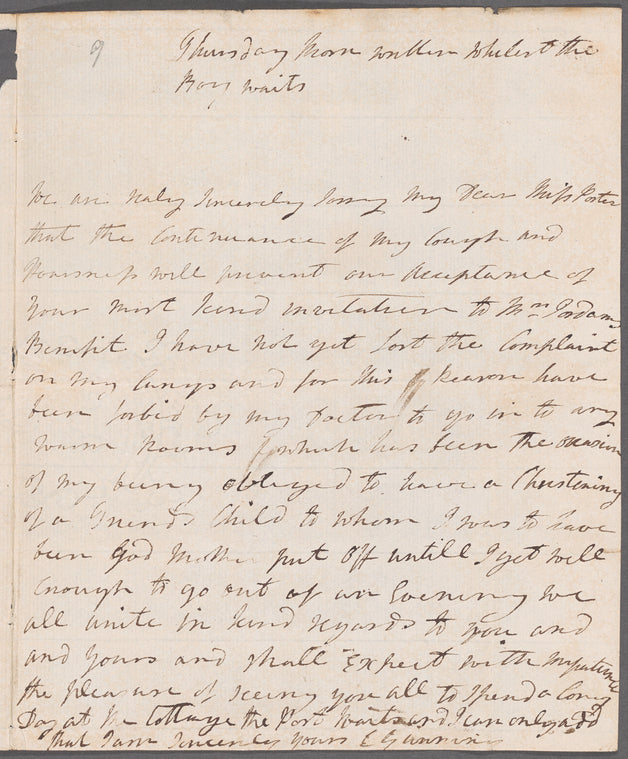 9
Thursday Morn written whilest the
Boy waits
We are realy sincerely sorry my Dear Miss Porter
that the Continuance of my Cough and
Hoarsness will prevent our acceptance of
your most kind invitation to Mrs Jordans
Benifit I have not yet lost the Complaint
on my Lungs and for this reason have
been forbid by my Doctor to go in to any
warm rooms which has been the occasion
of my being obleyed to have a Christening
of a Friends Child to whom I was to have
been God Mother put off untill I get well
enough to go out of an Evening We
all unite in kind regards to you and
and yours and shall Expect with impatience
the pleasure of seeing you all to spend a Long
Day at the Cottage the Post waits and I can only add
that I am Sincerely yours E Gunning